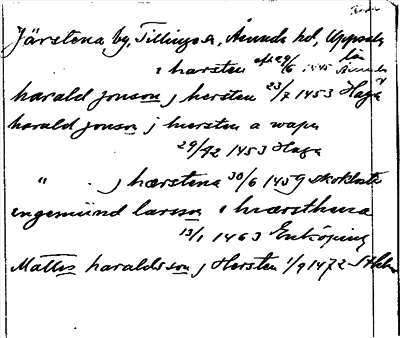 Järstena by, Tillinge sn, Åsunda hd, Uppsala
län
i harsten eft 29/6 1445
harald jonson j hersten 23/7 1453 Haga
harald jonson j hiersten a wapn
29/12 1453 Haga
" j hærstena 30/6 1459 Skokloster
engemund larsson i hwærsthena
13/1 1463 Enköping
Mattis haraldsson j Hersten 1/9 1472 Sthlm